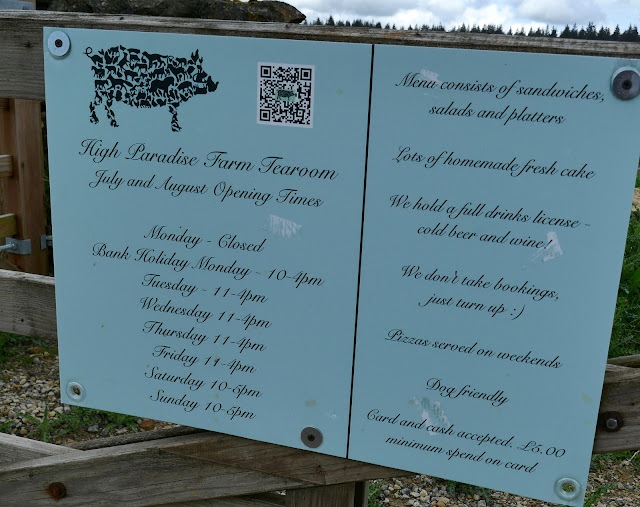 High Paradise Farm Tearoom
July and August Opening Times
Monday - Closed
Bank Holiday Monday - 10-4pm
Tuesday - 11-4pm
Wednesday 11-4pm
Thursday 11-4pm
Friday 11-4pm
Saturday 10-5pm
Sunday 10-5pm
Menu consists of sandwiches,
salads and platters
Lots of homemade fresh cake
We hold a full drinks license -
cold beer and wine!
We don't take bookings,
just turn up :)
Pizzas served on weekends
Dog friendly
Card and cash accepted. £5.00
minimum spend on card